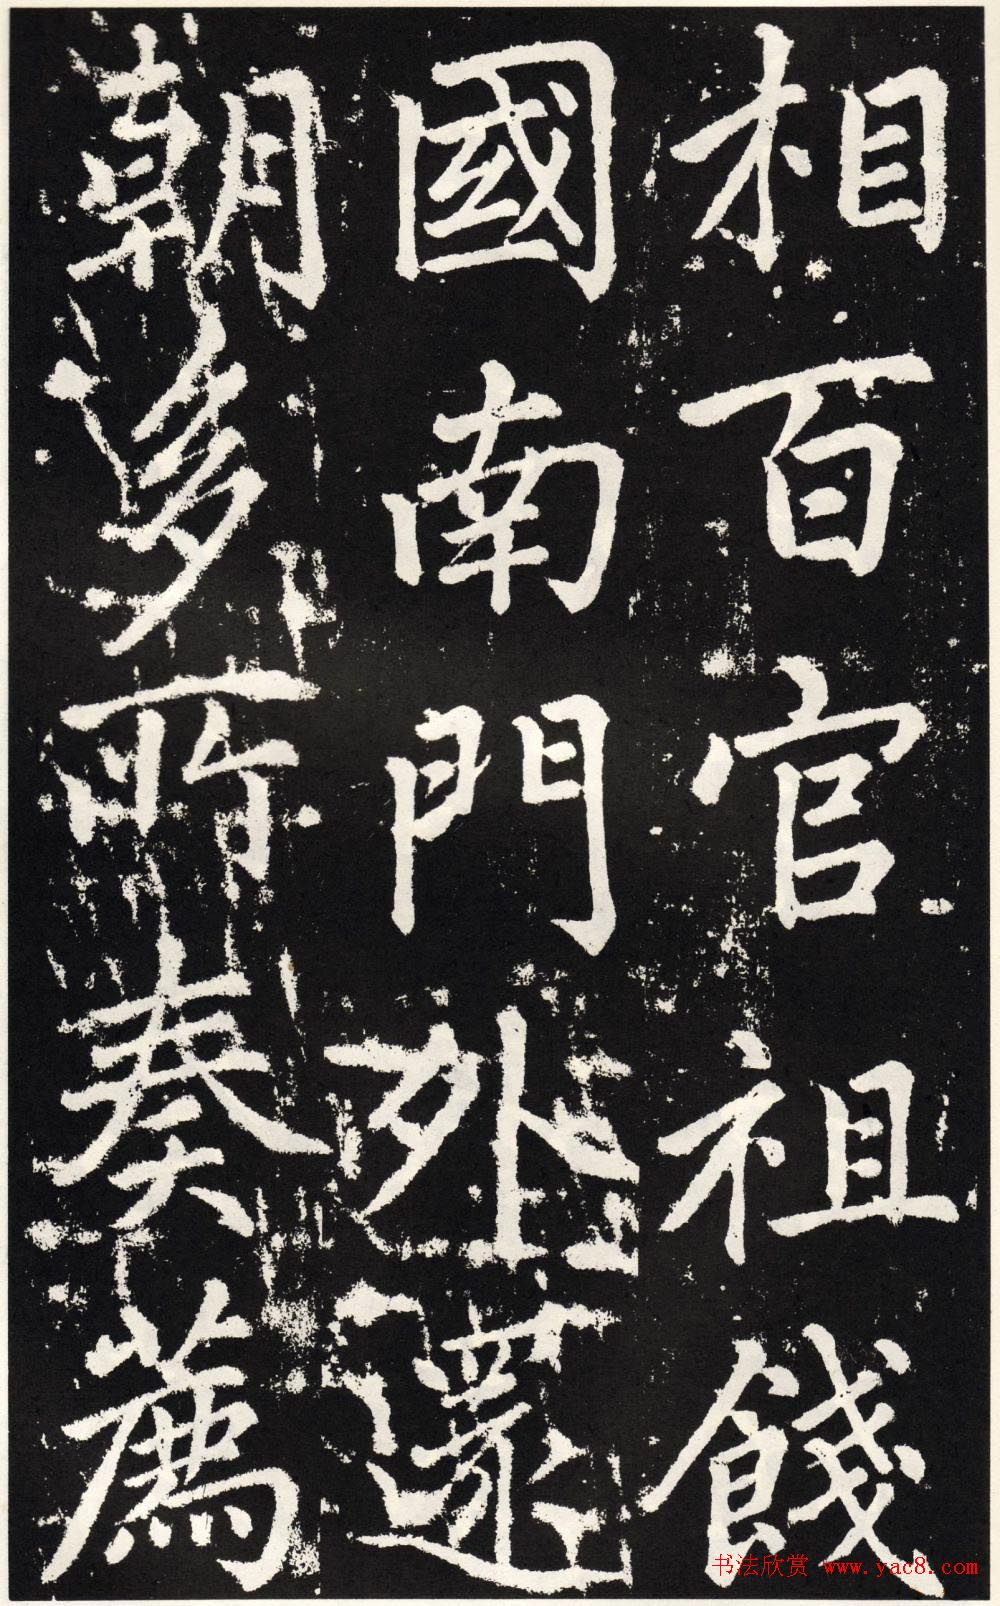 相百官祖餞
國南門外還
朝多所奏薦
书法欣赏 www.yac8.com